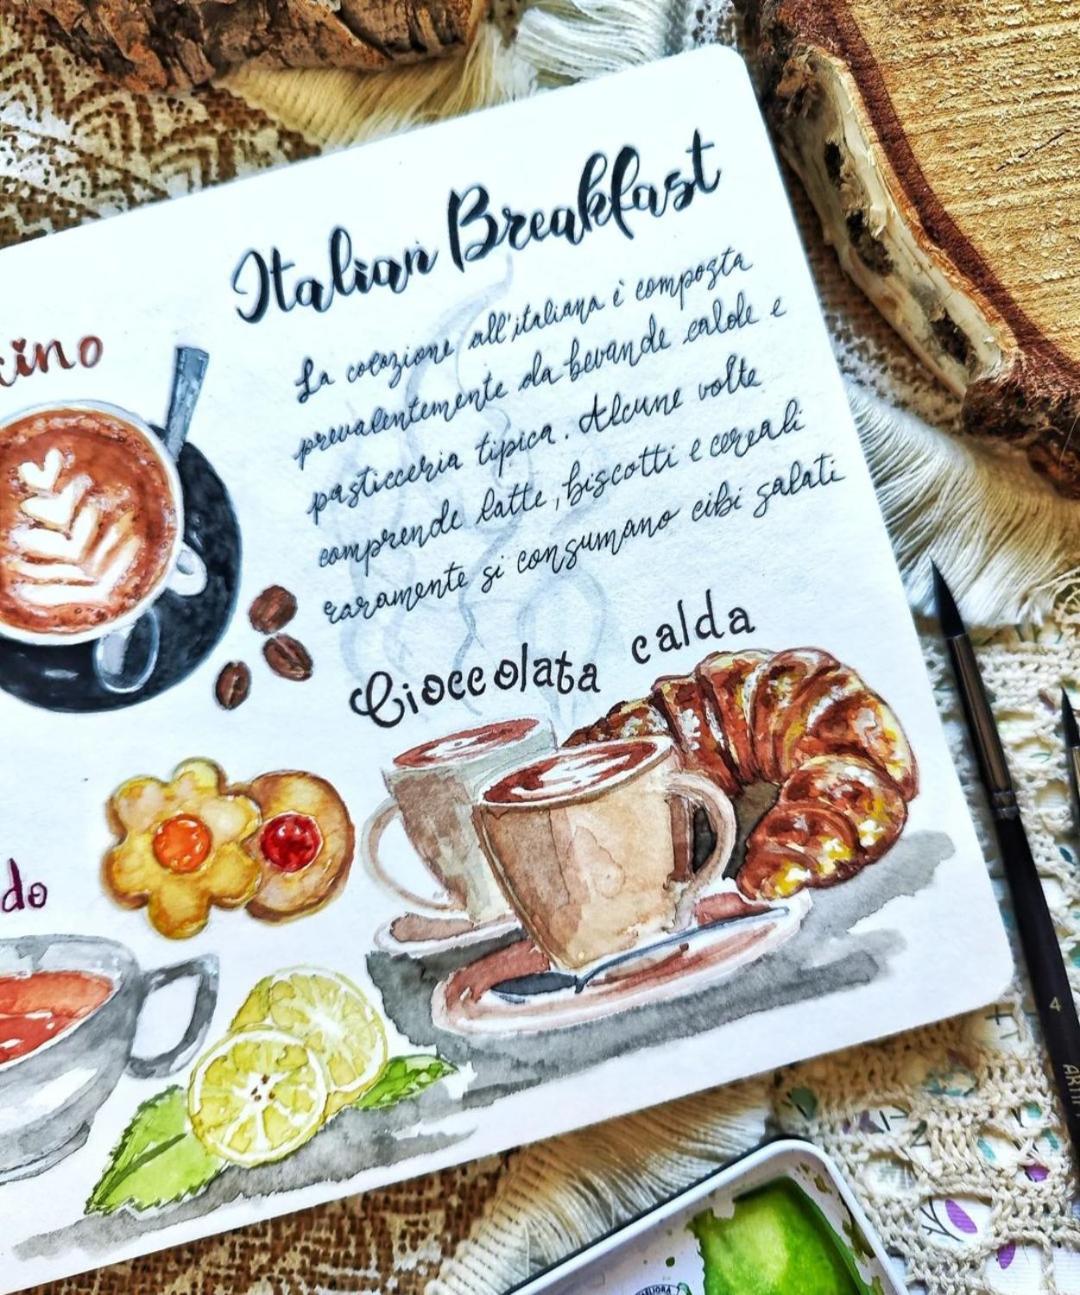 Italian Breakfast
La colazione all'italiana è composta
prevalentemente da bevande calde e
pasticceria tipica. Alcune volte
comprende latte, biscotti e cereali
raramente si consumano cibi salati
cino
Cioccolata calda
do
4